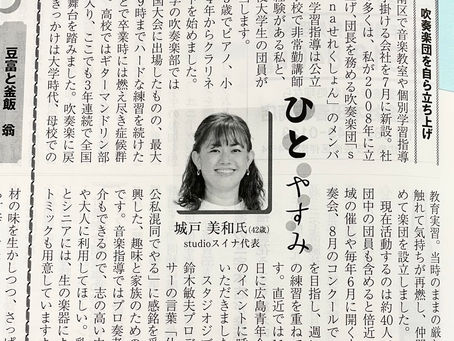 吹奏楽団を自ら立ち上げ
南区で音楽教室や個別学習指導
掛ける会社を7月に新設。社
多くは、私が2008年に立
団長を務める吹奏楽団「s
naせれくしょん」のメンバ
学習指導は公立
校で非常勤講師
験がある私と、
大学生の団員が
します。
歳でピアノ、小
年からクラリネ
を始めました。
学の吹奏楽部では
国大会に出場したものの、最大
9時までハードな練習を続けた
で卒業時には燃え尽き症候群
。高校ではギターマンドリン部
入り、ここでも3年連続で全国
舞台を踏みました。吹奏楽に戻
きっかけは大学時代、母校での
ひとやすみ
城戸 美和氏(42歳)
studioスイナ代表
教育実習。当時のままの厳
触れて気持ちが再燃し、仲
めて楽団を設立しました。
現在活動するのは約40人
団中の団員も含めると倍近
域の催しや毎年6月に開く
奏会、8月のコンクール
を目指し、週
の練習を重ね
す。直近では
日に広島青年会
のイベントに呼
いただきました
スタジオジブ
鈴木敏夫プロデ
サーの言葉「仕
公私混同でやる」に感銘を受
興した、趣味と家族のための
です。音楽指導ではプロ奏者
介もできるので、志の高い方
や大人に利用してほしい。乳
とシニアには、生の楽器によ
トミックも用意しています
豆富と釜飯 翁
材の味を生かしつつ、さっぱ